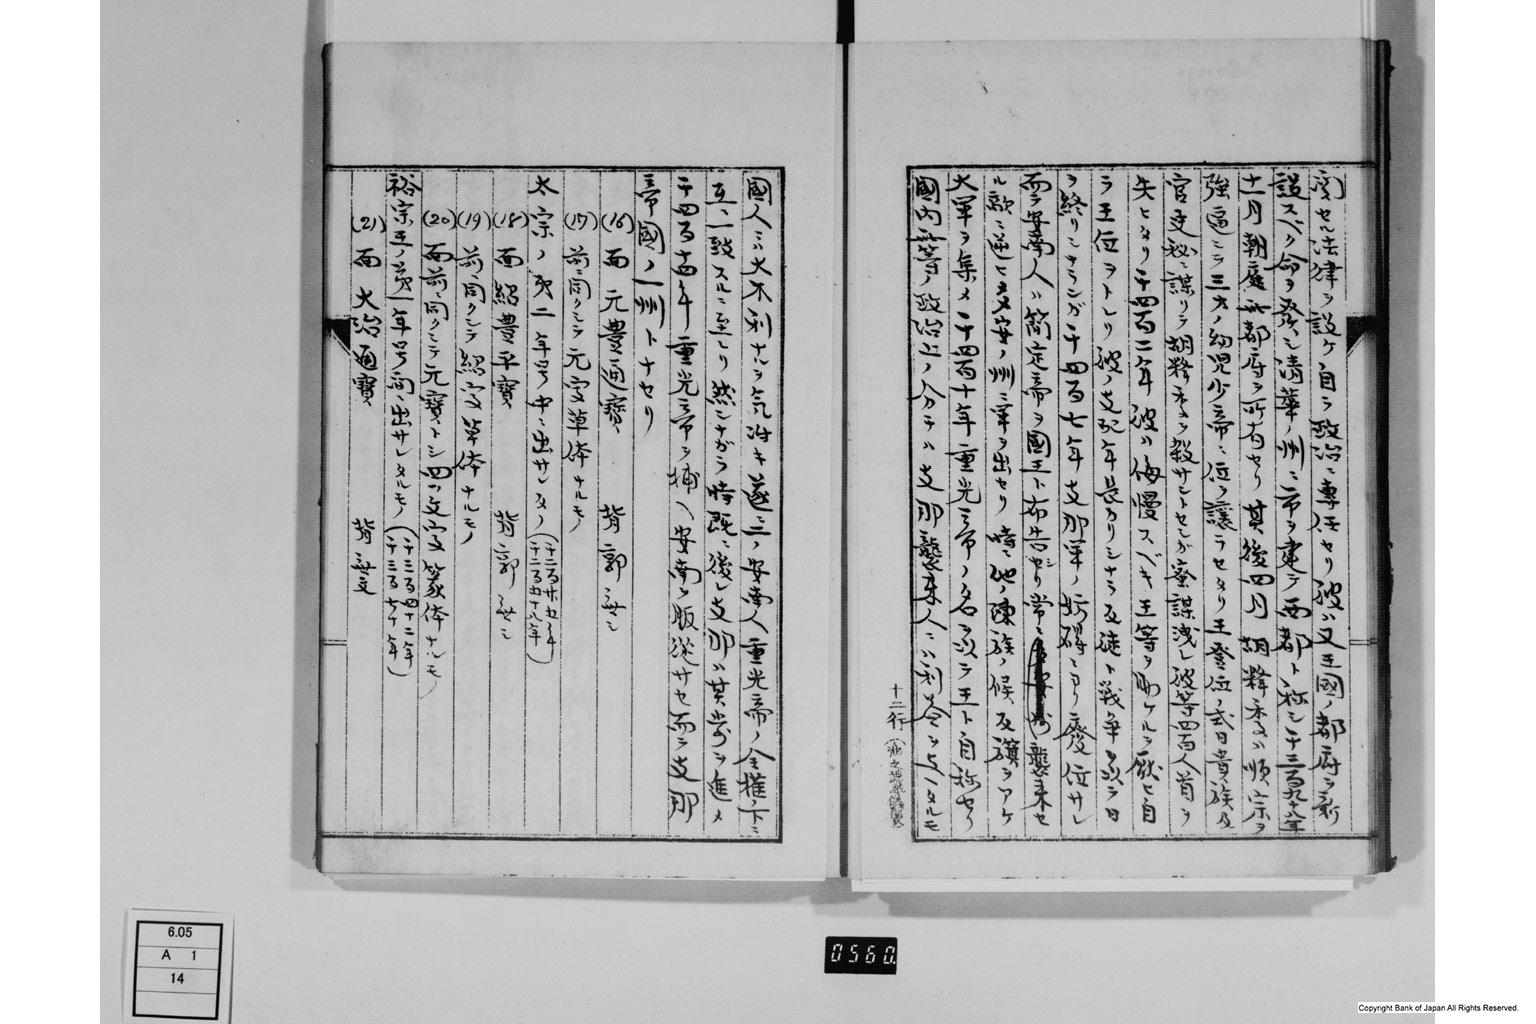 関セル法律ヲ設ケ自ラ政治ニ専任セリ彼ハ又王國ノ都府ヲ新
設スベク命ヲ發シ清華ノ州ニ一市ヲ建テ西都ト称シ千三百九十八年
十一月朝廷ハ都府ヲ所有セリ其後四月胡釋季ハ順宗ヲ
強逼シテ三才ノ幼児少帝ニ位ヲ讓ラセタリ王登位ノ式日貴族及
官吏秘ニ謀リテ胡釋季ヲ殺サントセシガ蜜謀洩レ彼等四百人首ヲ
失ヒタリ千四百二年彼ハ侮慢スベキ王等ヲ助ケルヲ厭ヒ自
ラ王位ヲトレリ彼ノ支配年長カリシナラ及徒ト戦争ヲ以テ日
ヲ終リシナランガ千四百七年支那軍ノ為ニヨリ廢位サレ
而テ安南人ハ簡定帝ヲ國王ト布告セリ常ニ襲来セ
ル敵ニ逆ヒ乂安ノ州ニ軍ヲ出セリ時ニ他ノ陳族ノ候及旗ヲアケ
大軍ヲ集メ千四百十年重光帝ノ名ヲ以テ王ト自称セリ
國内二等ノ政治上ノ分チハ支那襲来人ニハ利益ヲ与ヘタルモ
十二行
國人ニハ大不利ナルヲ気附キ遂ニ二ノ安南人重光帝ノ全権ノ下ニ
互ニ一致スルニ至レリ然シナガラ時既ニ後レ支那ハ其歩ヲ進メ
千四百十四年重光帝ヲ捕ヘ安南ヲ服従サセ而テ支那
帝國ノ一州トナセリ
(16) 面 元豊通寳 背郭無シ
(17) 前ニ同クシテ元字草体ナルモノ
太宗ノ第二年号中ニ出サレタノ(千二百廿五年 千二百五十八年)
(18) 面紹豊平寳 背郭無シ
(19) 前同クシテ紹字草体ナルモノ
(20) 面前ニ同クシテ元寳トシ四ツ文字篆体ナルモノ
裕宗王ノ第一年号間ニ出サレタルモノ(千三百四十二年 千三百五十七年)
(21) 面大治通寳 背無文
6.05
A 1
14
0560.
Copyright Bank of Japan All Rights Reserved.